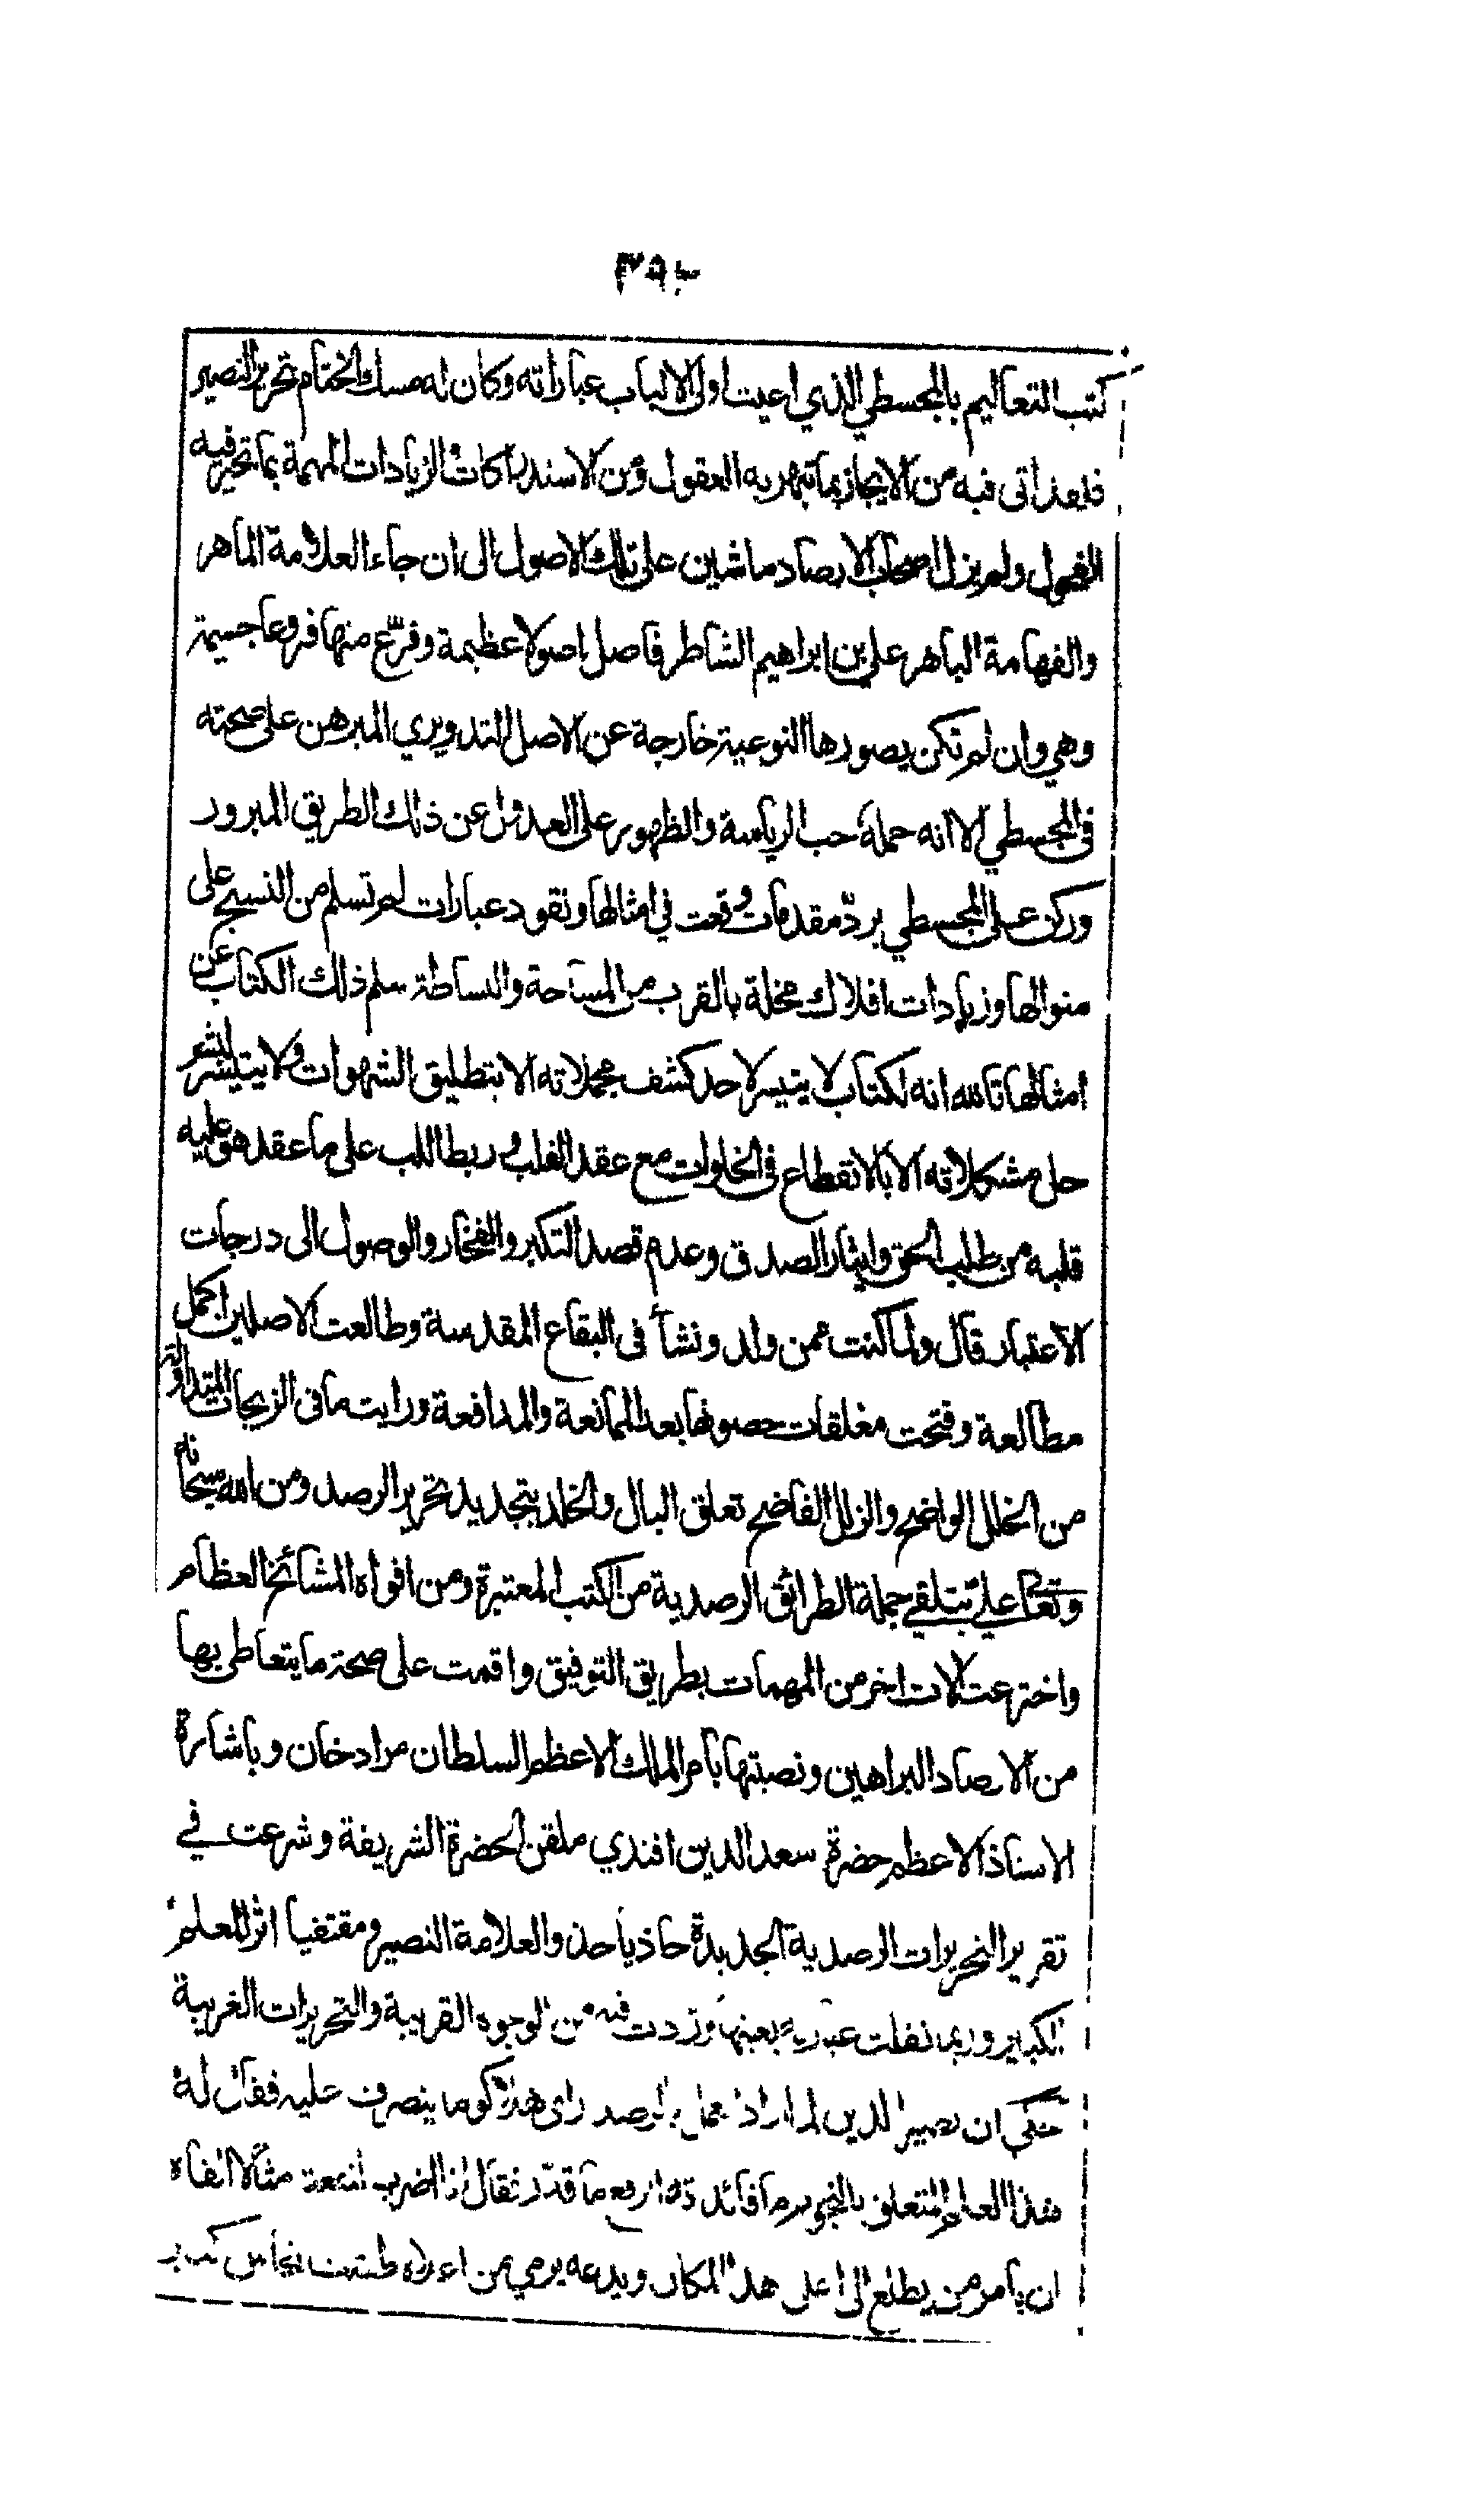 ٣٩٠
كتب التعاليم بالمجسطي الذي اعيت اولى الالباب عباراته وكان له مسك الختام تحرير النصير
فلقد اتى فيه من الايجاز بما تبهر به العقول ومن الاستدراكات والزيادات المهمة بما تحير فيه
الفحول ولم يزل اصحاب الارصاد ماشين على تلك الاصول الى ان جاء العلامة الماهر
والفهامة الباهر علي بن ابراهيم الشاطر فاصل اصولا عظيمة وفرّع منها فروعا جسيمة
وهي وان لم تكن بصورها النوعية خارجة عن الاصل التدويري المبرهن على صحته
في المجسطي الا انه حمله حب الرياسة والظهور على العدول عن ذلك الطريق المبرور
وركن على المجسطي بردّ مقدمات وقعت في امثالها ونقود عبارات لم تسلم من النسيج على
منوالها وزيادات افلاك مخلة بالقرب من المساحة والبساطة سلم ذلك الكتاب عن
امثالها تالله انه لكتاب لا يتيسر لاحد كشف مجملاته الا بتطليق الشهوات ولا يتيسر لبشر
حل مشكلاته الا بالانقطاع في الخلوات مع عقد القلب وربط اللب على ما عقد هو عليه
قلبه من طلب الحق وايثار الصدق وعدم قصد التكبر والفخار والوصول الى درجات
الاعتبار قال ولما كنت ممن ولد ونشأ في البقاع المقدسة وطالعت الاصلين اكمل
مطالعة وفتحت مغلقات حصونها بعد الممانعة والمدافعة ورايت ما في الزيجات المتداولة
من الخلل الواضح والزلل الفاضح تعلق البال والخلد بتجديد تحرير الرصد ومن الله سبحانه
وتعالى علي بتلقي جملة الطرائق الرصدية من الكتب المعتبرة ومن افواه المشائخ العظام
واخترعت الات اخر من المهمات بطريق التوفيق واقمت على صحة ما يتعاطى بها
من الارصاد البراهين ونصبتها بامر الملك الاعظم السلطان مراد خان وباشارة
الاستاذ الاعظم حضرة سعد الدين افندي ملقن الحضرة الشريفة وشرعت في
تقرير التحريرات الرصدية الجديدة حاذيا حذو العلامة النصير ومقتفيا اثر المعلم
الكبير وربما نقلت عبارته بعينها وزدت فيه من الوجوه القريبة والتحريرات الغريبة
حكي ان نصير الدين لما اراد العمل بالرصد راى هلاكو ما ينصرف عليه فقال له
هذا العلم المتعلق بالنجوم ما فائدته ايرفع ما قدّر فقال انا اضرب لمنفعته مثالا القاان
ان يامر من يطلع الى اعلى هذا المكان ويدعه يرمي من اعلاه طشت نحاس كبير